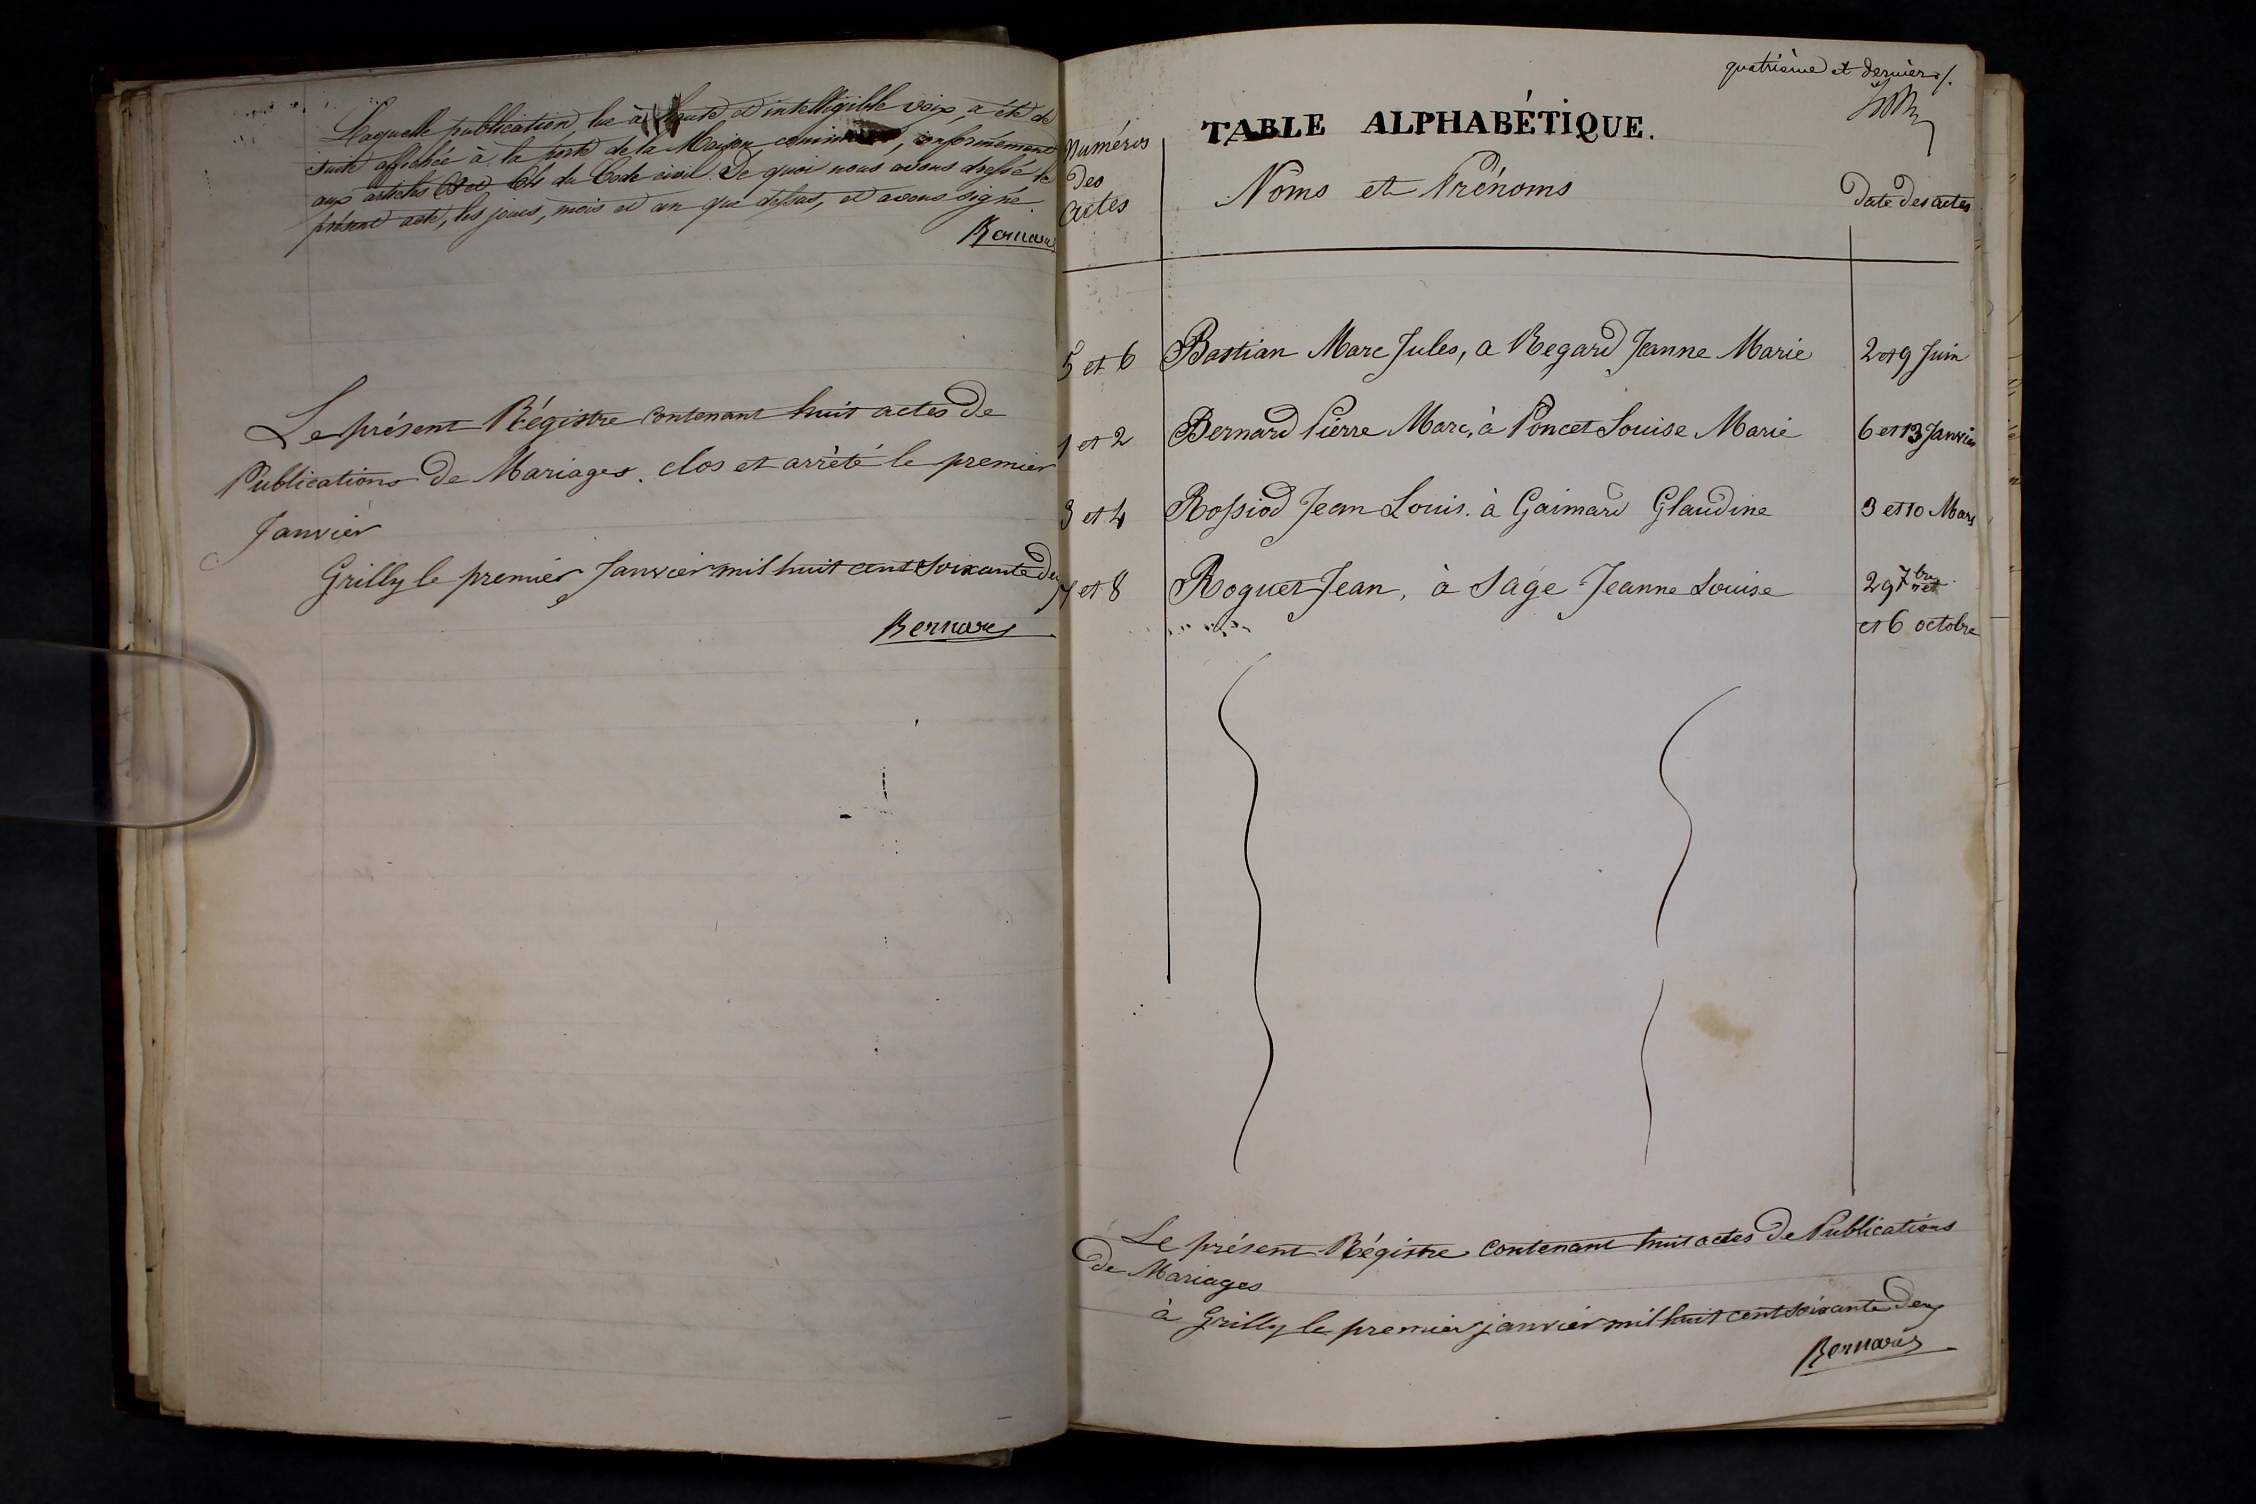 Laquelle publication, lue à haute et intelligible voix, a été de
suite affichée à la porte de la Maison commune, conformément
aux articles 63 et 64 du Code civil. De quoi nous avons dressé le
présent acte, les jours, mois et an que dessus, et avons signé.
Bernard
Le présent Régistre contenant huit actes de
Publications de Mariages. clos et arrèté le premier
Janvier
Grilly le premier Janvier mil huit cent soixante deux
Bernard
quatrième et dernier /.
TABLE ALPHABÉTIQUE.
Numéros des Actes
Noms et Prénoms
Date des actes
5 et 6 Bastian Marc Jules, a Regard Jeanne Marie 2 et 9 Juin
1 et 2 Bernard Pierre Marc, à Poncet Louise Marie 6 et 13 Janvier
3 et 4 Rossiod Jean Louis. à Gaimard Glaudine 3 et 10 Mars
7 et 8 Roguet Jean, à Sage Jeanne Louise 29 7bre
et 6 octobre
Le présent Régistre contenant huit actes de Publications
de Mariages
à Grilly le premier janvier mil huit cent soixante deux
Bernard